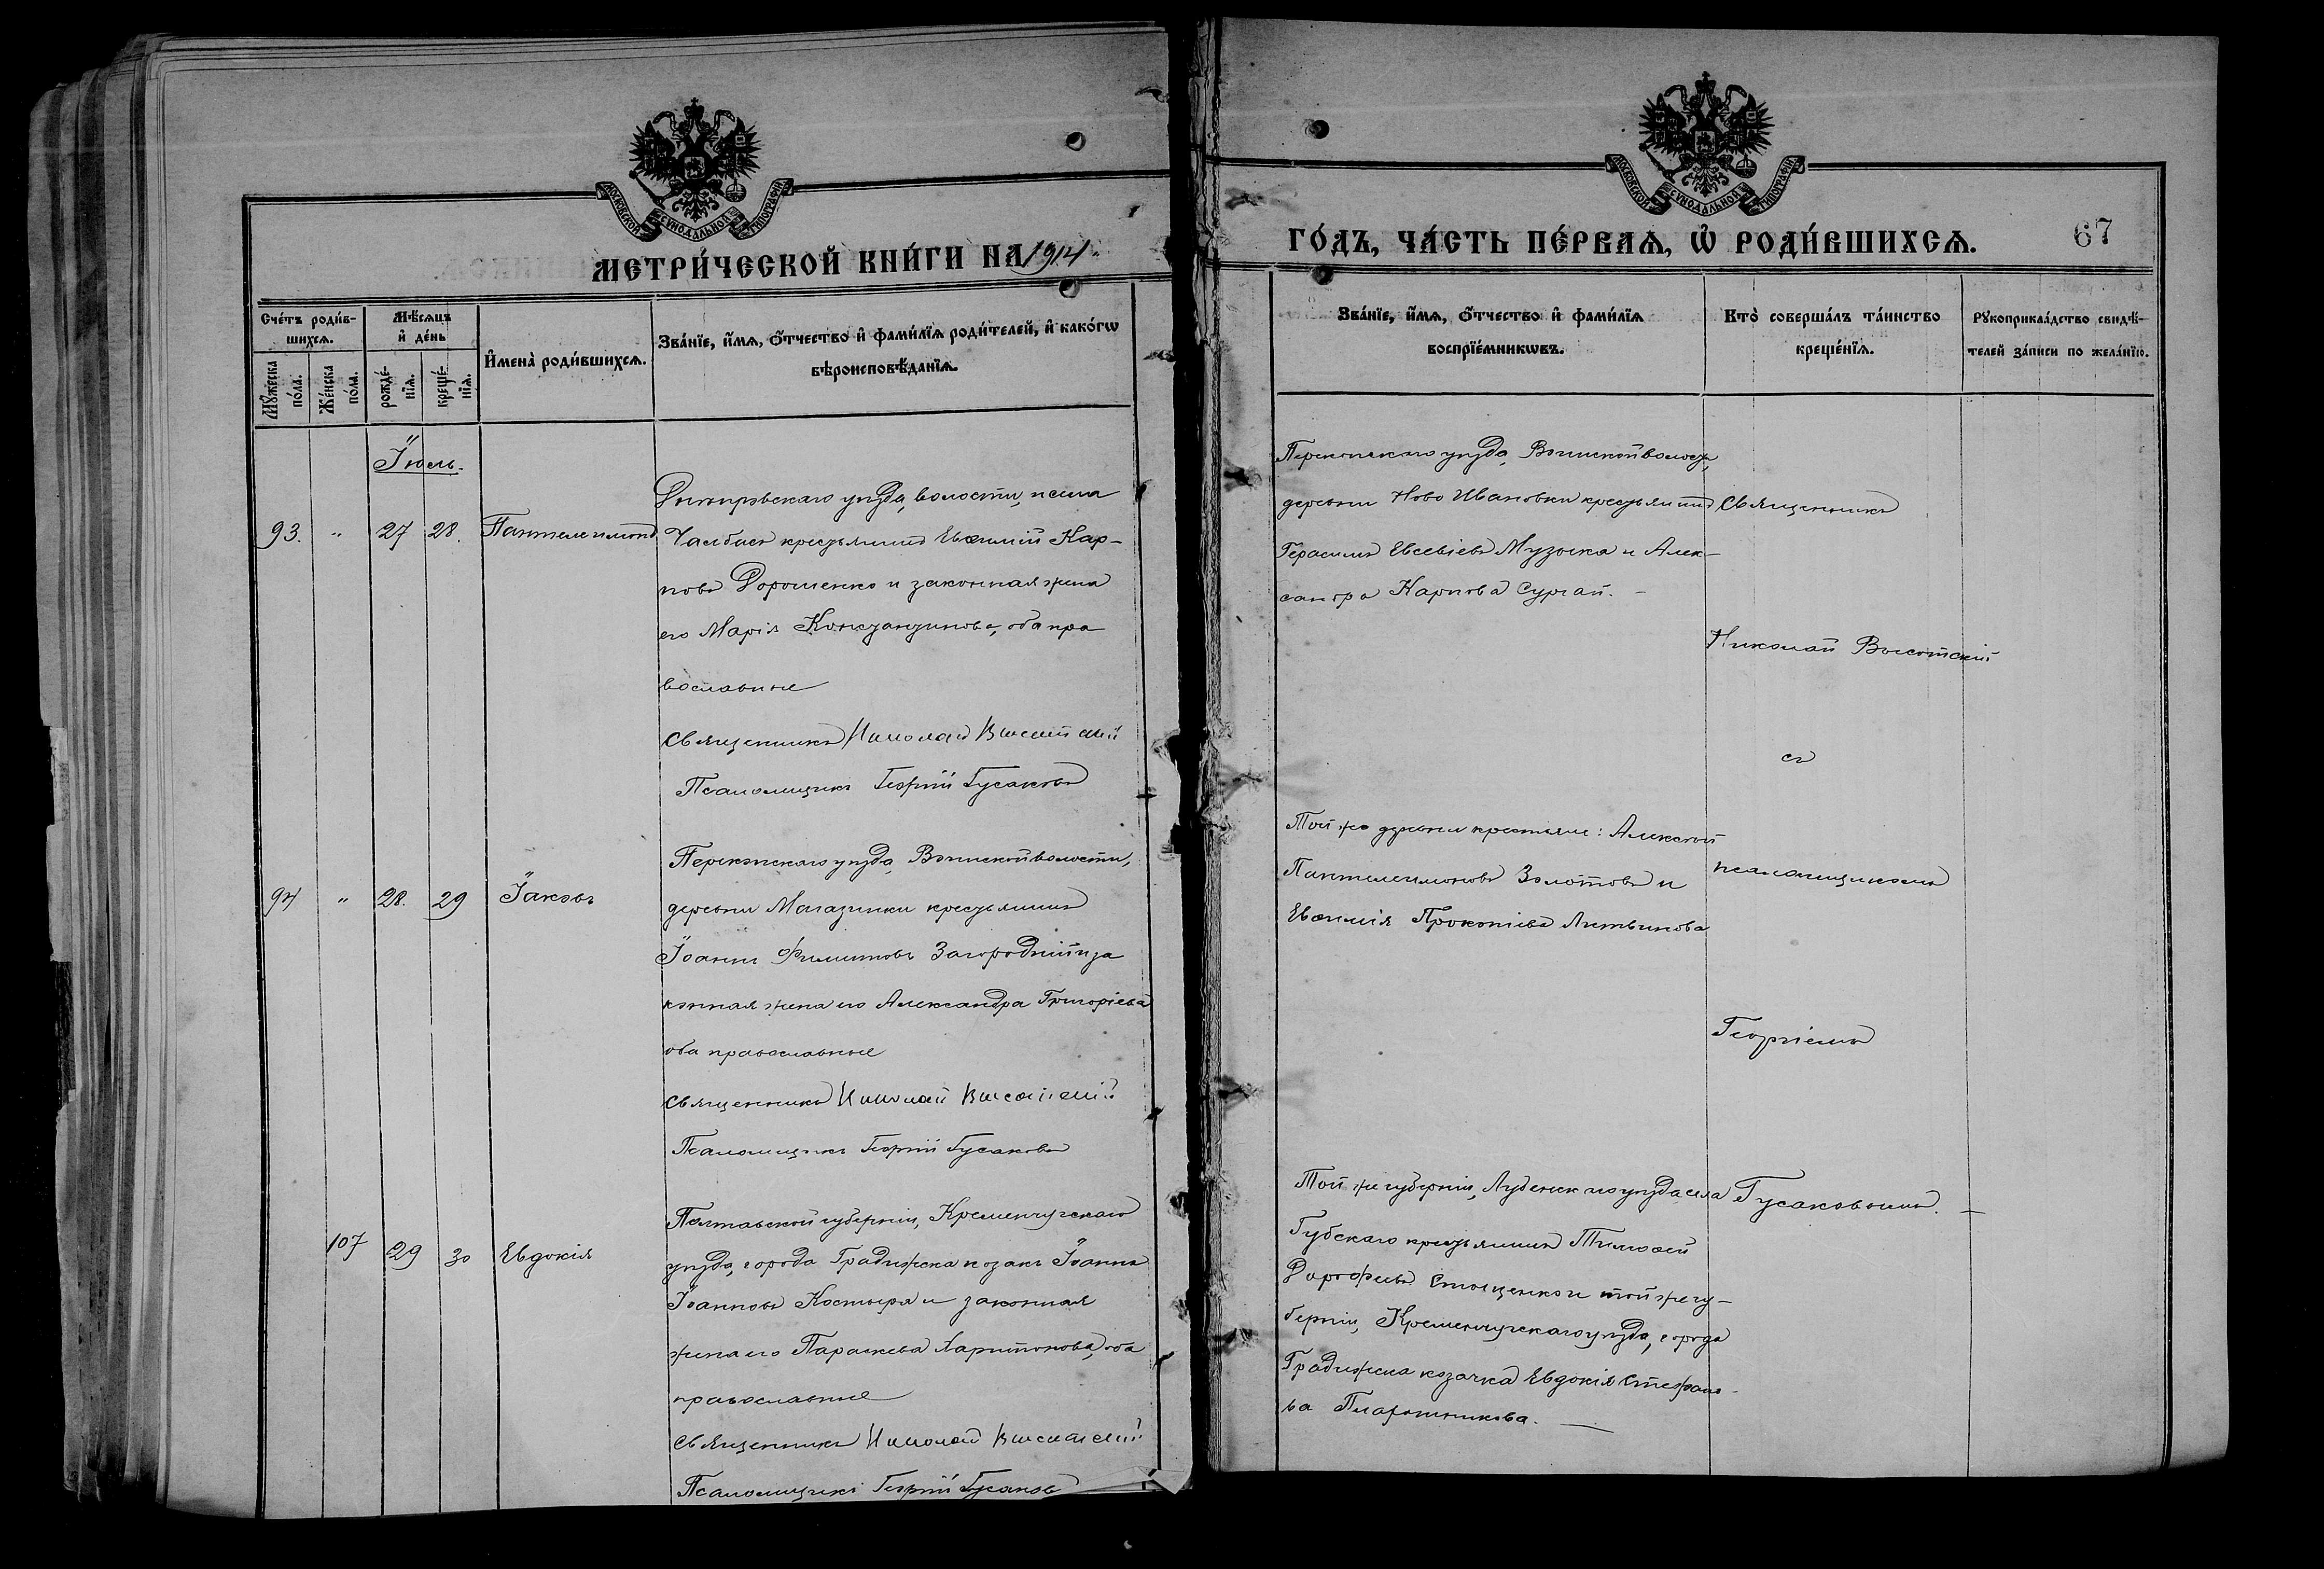 МОСКОВСКОЙ СУНОДАЛЬНОЙ ТИПОГРАФИИ
МЕТРИ́ЧЕСКОЙ КНИ́ГИ НА 1914
Сче́тъ роди́в-
шихсѧ.
Мꙋ́жеска по́ла.
Же́нска по́ла.
Мѣ́сѧцъ
и҆ де́нь
рожде́-
нїѧ.
креще́-
нїѧ.
И҆мена̀ роди́вшихсѧ.
Зва́нїе, и҆́мѧ, ѻ҆́тчество и҆ фами́лїѧ роди́телей, и҆ како́гѡ
вѣроисповѣ́данїѧ.
Іюль.
93. " 27 28. Пантелеимонъ
Днѣпровскаго уѣзда, волости, и села
Чалбасъ крестьянинъ Евѳимій Кар-
повъ Дорошенко и законная жена
его Марія Константинова, оба пра
вославные
Священникъ Николай Высотскій
Псаломщикъ Георгій Гусаковъ
94 " 28. 29 Іаковъ
Перекопскаго уѣзда, Воинской волости,
деревни Магазинки крестьянинъ
Іоаннъ Филиповъ Загородній и за
конная жена его Александра Григоріева
оба православные
Священникъ Николай Высотскій
Псаломщикъ Георгій Гусаковъ
107 29 30 Евдокія
Полтавской губерніи, Кременчугскаго
уѣзда, города Градижска козакъ Іоаннъ
Іоанновъ Костыря и законная
жена его Параскева Харитонова, оба
православные
Священникъ Николай Высотскій
Псаломщикъ Георгій Гусаковъ
МОСКОВСКОЙ СУНОДАЛЬНОЙ ТИПОГРАФИИ
ГО́ДЪ, ЧА́СТЬ ПЕ́РВАѦ, Ѡ҆ РОДИ́ВШИХСѦ.
67
Зва́нїе, и҆́мѧ, ѻ҆́тчество и҆ фами́лїѧ
воспрїе́мникѡвъ.
Кто̀ соверша́лъ та́инство
креще́нїѧ.
Рꙋкоприкла́дство свидѣ́-
телей за́писи по жела́нїю.
Перекопскаго уѣзда, Воинской волости,
деревни Ново Ивановки крестьянинъ
Герасимъ Евсевіевъ Музыка и Алек-
сандра Карпова Сургай.
Той же деревни крестьяне: Алексѣй
Пантелеимоновъ Золотовъ и
Евѳимія Прокопіева Литвинова
Той же губерніи, Лубенскаго уѣзда, села
Губскаго крестьянинъ Тимоѳей
Дороѳеевъ Стоценко и той же гу-
берніи, Кременчугскаго уѣзда, города
Градижска козачка Евдокія Стефано-
ва
Священникъ
Николай Высотскій
съ
псаломщикомъ
Георгіемъ
Гусаковымъ.